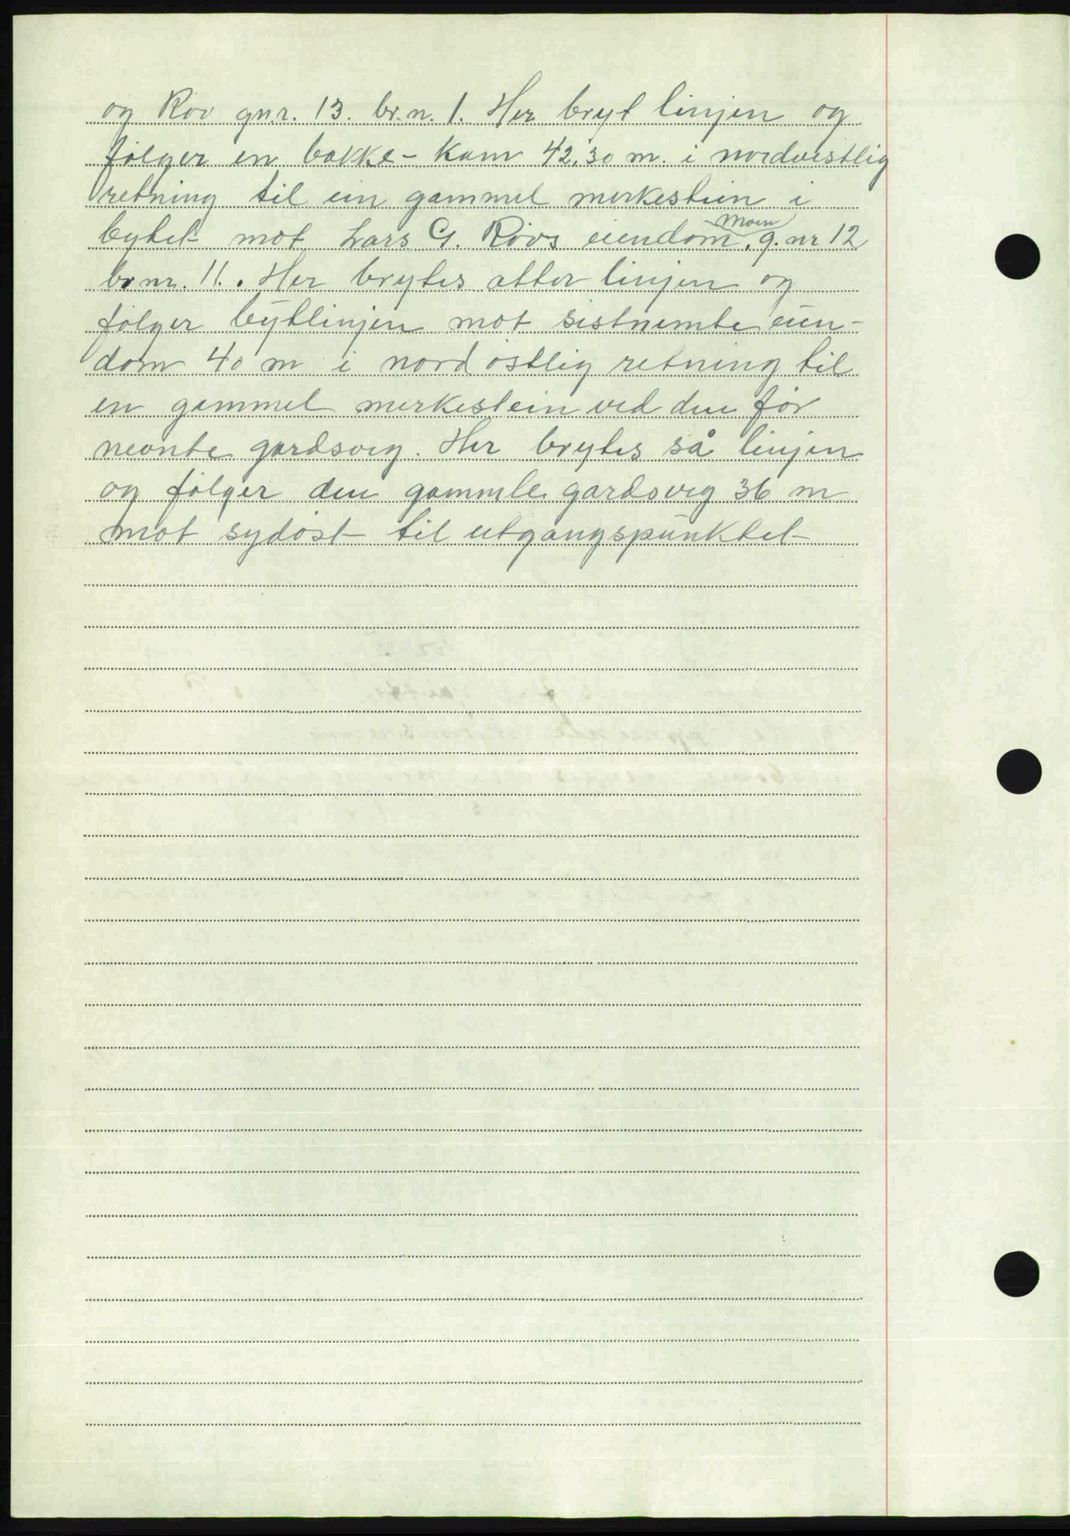 og Röv gnr. 13. br.n. 1. Her bryt linjen og
følger en bakke-kam 42,30 m. i nordvestlig
retning til ein gammel merkestein i
bytet mot Lars G. Røvs eiendom, Moen g.nr 12
br.nr. 11. Her brytes atter linjen og
følger bytlinjen mot sistnemte eien-
dom 40 m i nordøstlig retning til
en gammel merkestein ved den før
nevnte gardsveg. Her brytes så linjen
og følger den gammle gardsveg 36 m
mot sydøst til utgangspunktet